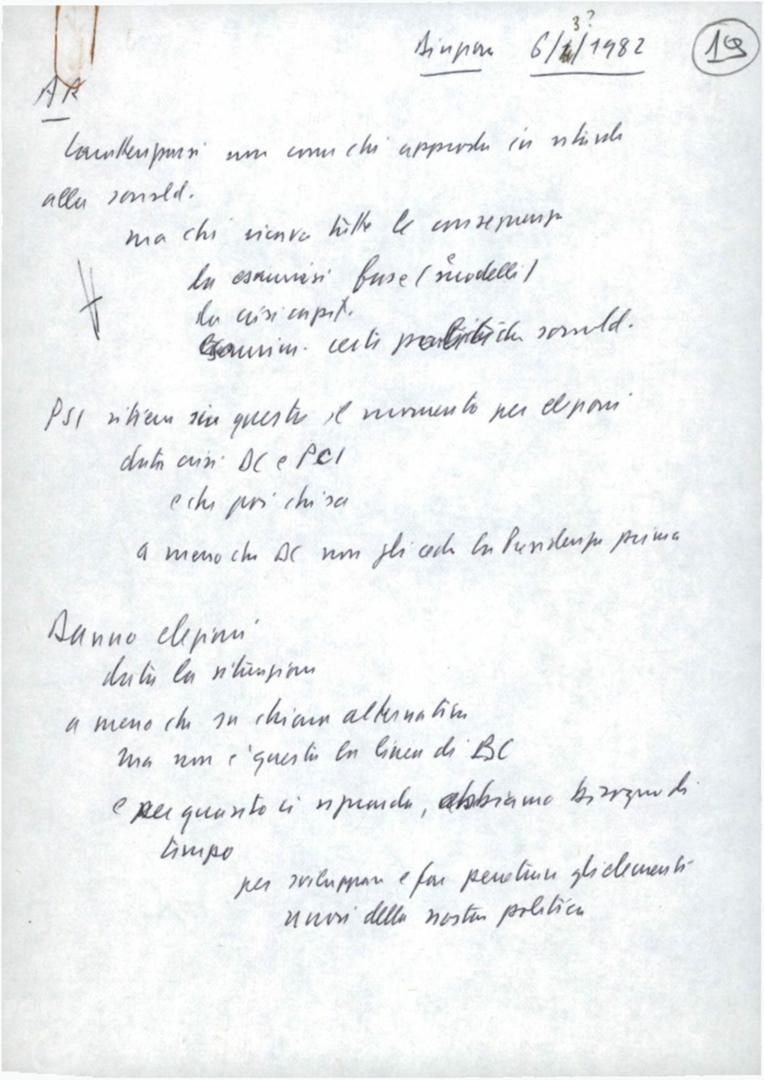 3?
Direzione 6/4/1982 19
AR
Caratterizzarsi non come chi approda in ritardo
alla socialld.
ma chi ricava tutte le conseguenze
da esaurirsi fase (modelli)
da crisi capit.
esaurim. certe politiche socialld.
PSI ritiene sia questo il momento per elezioni
data crisi DC e PCI
e che poi chissà
a meno che DC non gli ceda la Presidenza prima
Danno elezioni
data la situazione
a meno che su chiara alternativa
ma non è questa la linea di BC
e per quanto ci riguarda, abbiamo bisogno di
tempo
per sviluppare e far penetrare gli elementi
nuovi della nostra politica